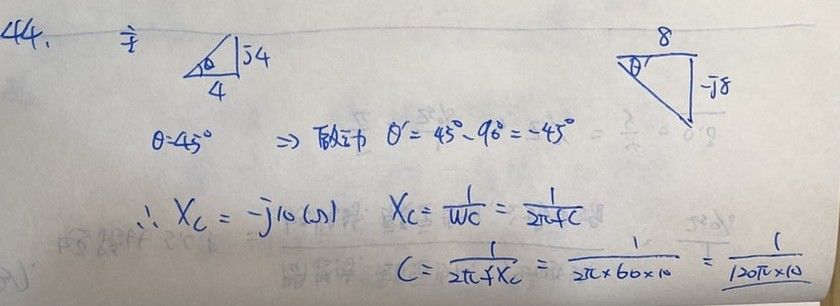 44. 主 θ j4 4
8 θ' -j8
θ=45° ⇒ 啟動 θ' = 45° - 90° = -45°
∴ Xc = -j10(Ω) Xc = 1/WC = 1/2πfC
C = 1/2πfXc = 1/2π×60×10 = 1/120π×10